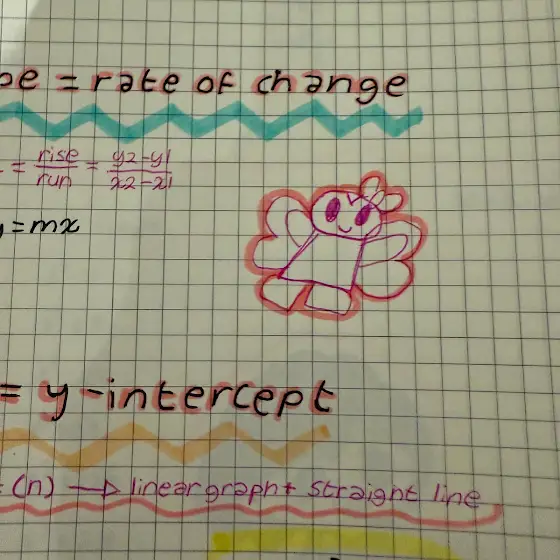 pe = rate of change
= rise/run = y2-y1/x2-x1
y = mx
= y-intercept
= (n) → linear graph + straight line